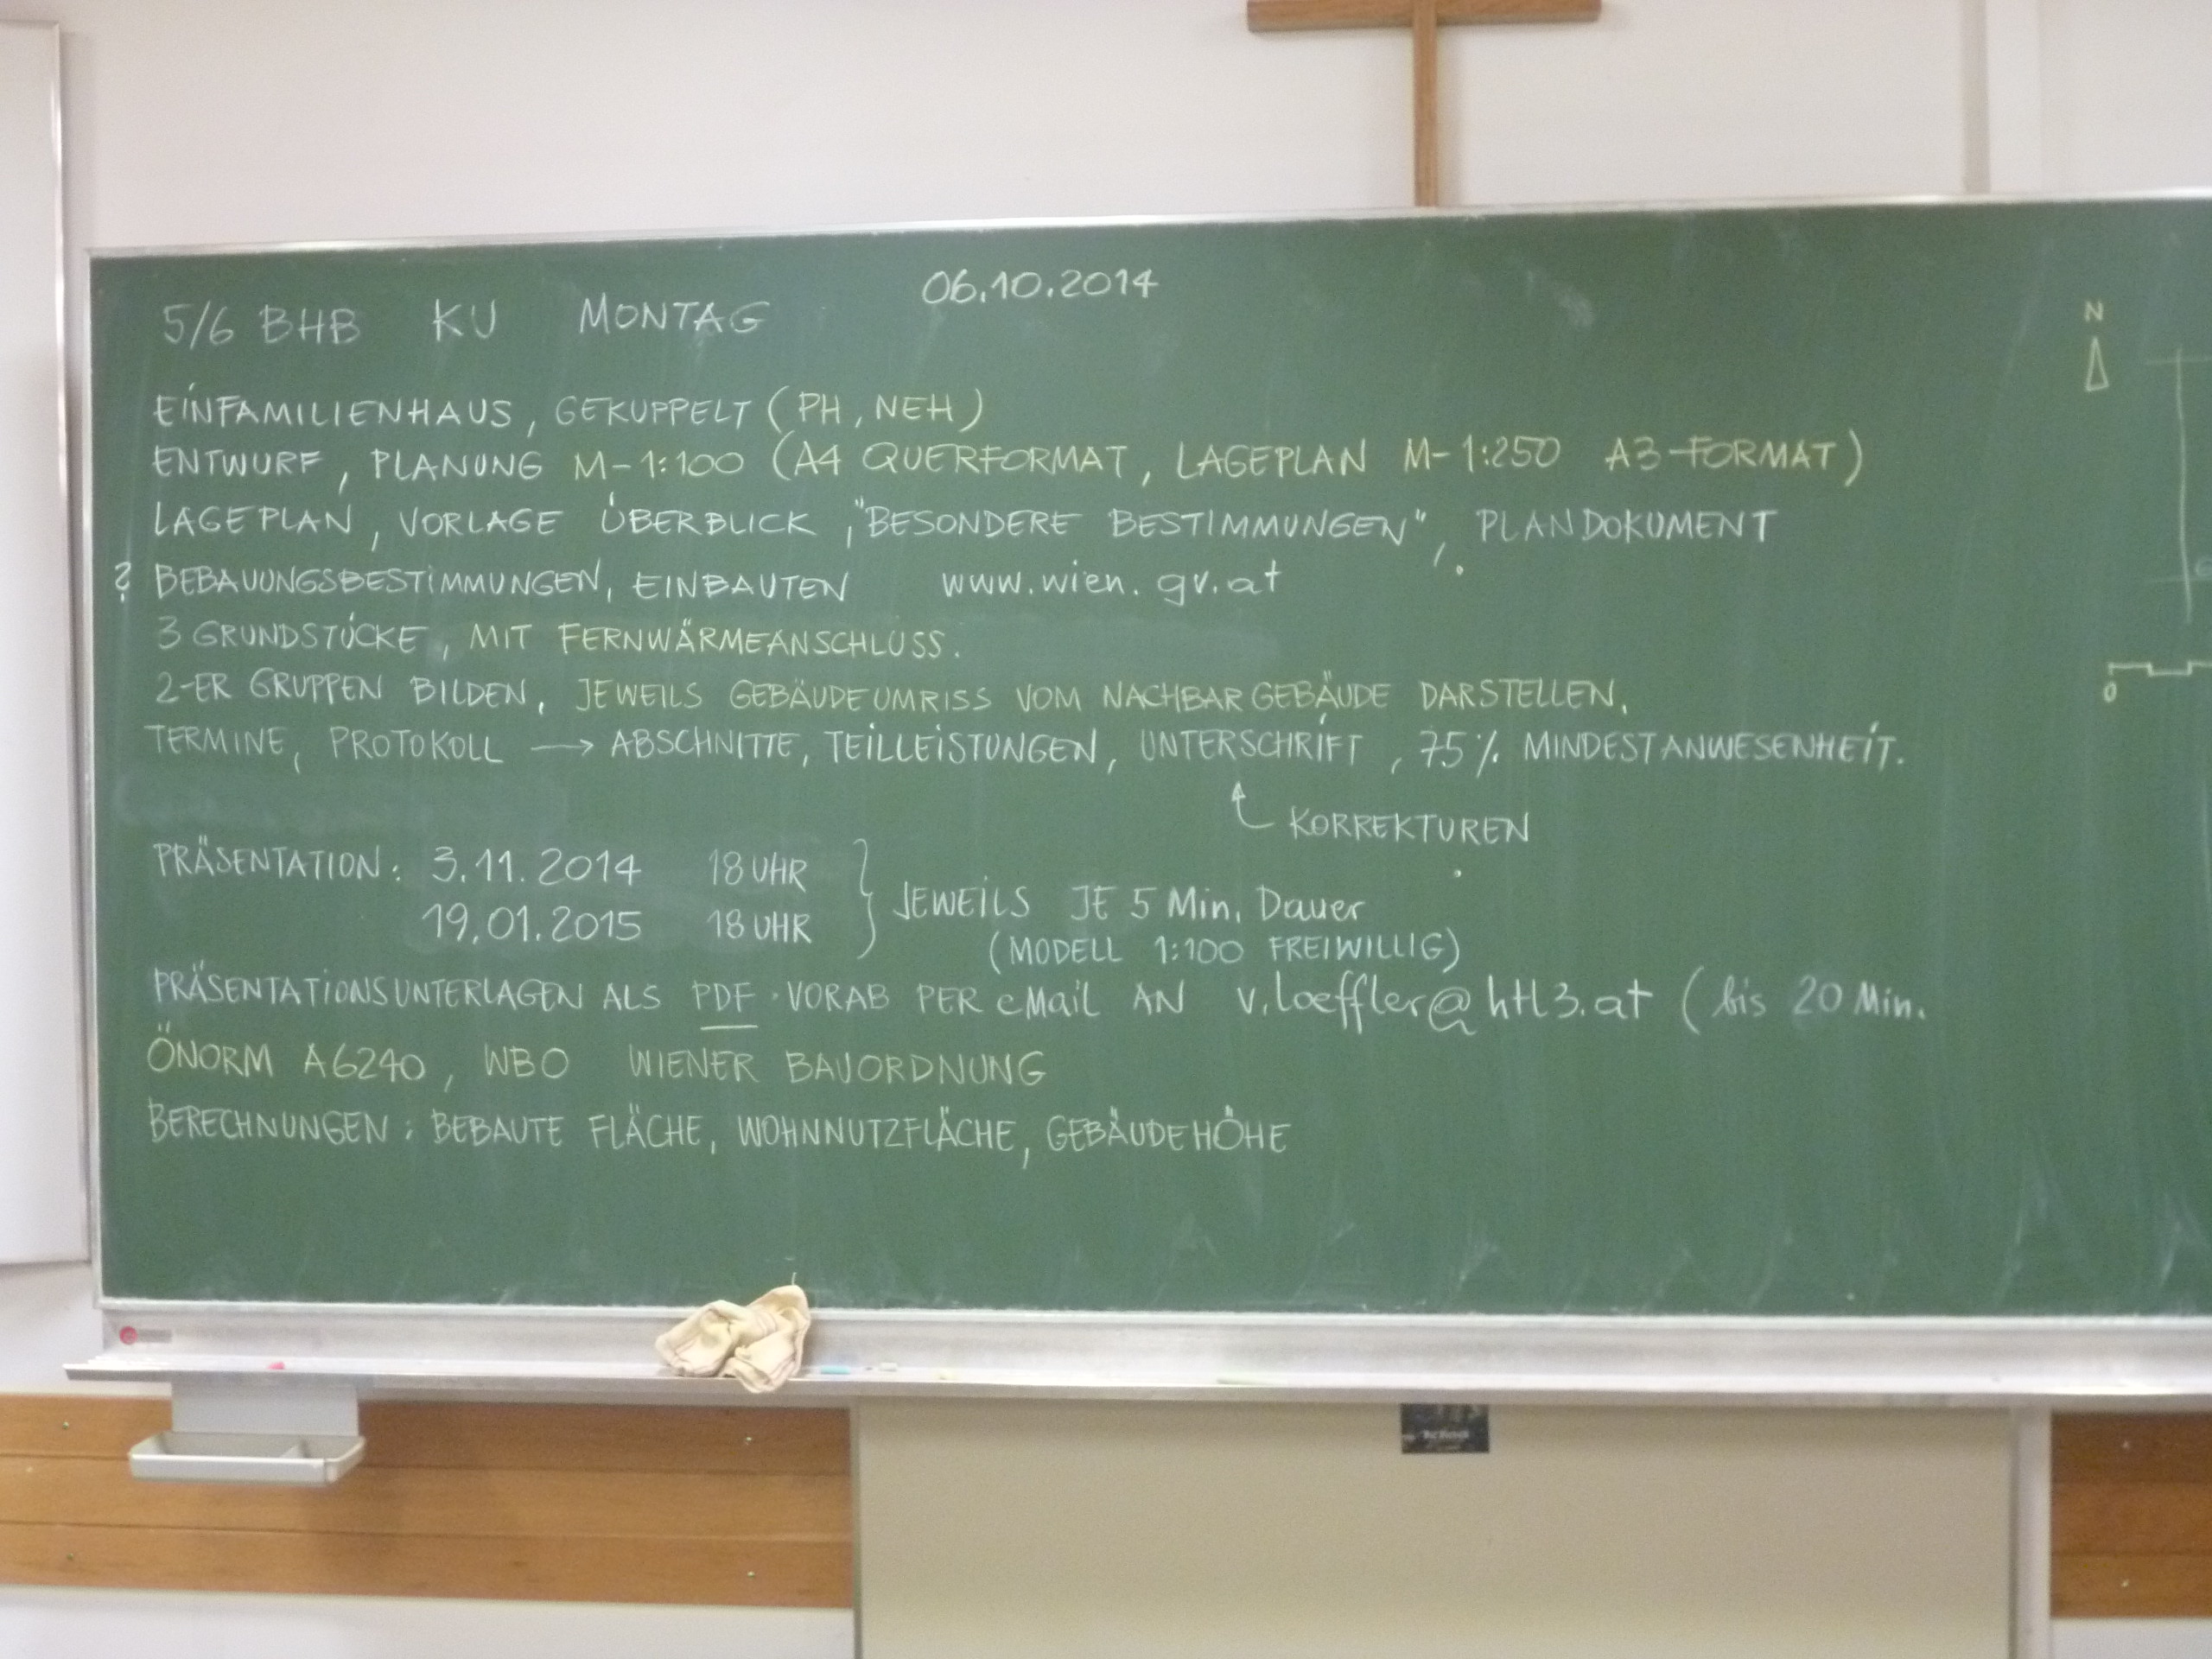 06.10.2014
5/6 BHB KU MONTAG
EINFAMILIENHAUS, GEKUPPELT (PH, NEH)
ENTWURF, PLANUNG M-1:100 (A4 QUERFORMAT, LAGEPLAN M-1:250 A3-FORMAT)
LAGEPLAN, VORLAGE ÜBERBLICK, "BESONDERE BESTIMMUNGEN", PLANDOKUMENT
? BEBAUUNGSBESTIMMUNGEN, EINBAUTEN www.wien.gv.at
3 GRUNDSTÜCKE, MIT FERNWÄRMEANSCHLUSS.
2-ER GRUPPEN BILDEN, JEWEILS GEBÄUDEUMRISS VOM NACHBARGEBÄUDE DARSTELLEN.
TERMINE, PROTOKOLL → ABSCHNITTE, TEILLEISTUNGEN, UNTERSCHRIFT, 75% MINDESTANWESENHEIT.
KORREKTUREN
PRÄSENTATION: 3.11.2014 18 UHR
19.01.2015 18 UHR
JEWEILS JE 5 Min. Dauer
(MODELL 1:100 FREIWILLIG)
PRÄSENTATIONSUNTERLAGEN ALS PDF · VORAB PER eMail AN v.loeffler@htl3.at (bis 20 Min.
ÖNORM A6240, WBO WIENER BAUORDNUNG
BERECHNUNGEN: BEBAUTE FLÄCHE, WOHNNUTZFLÄCHE, GEBÄUDEHÖHE
N
0